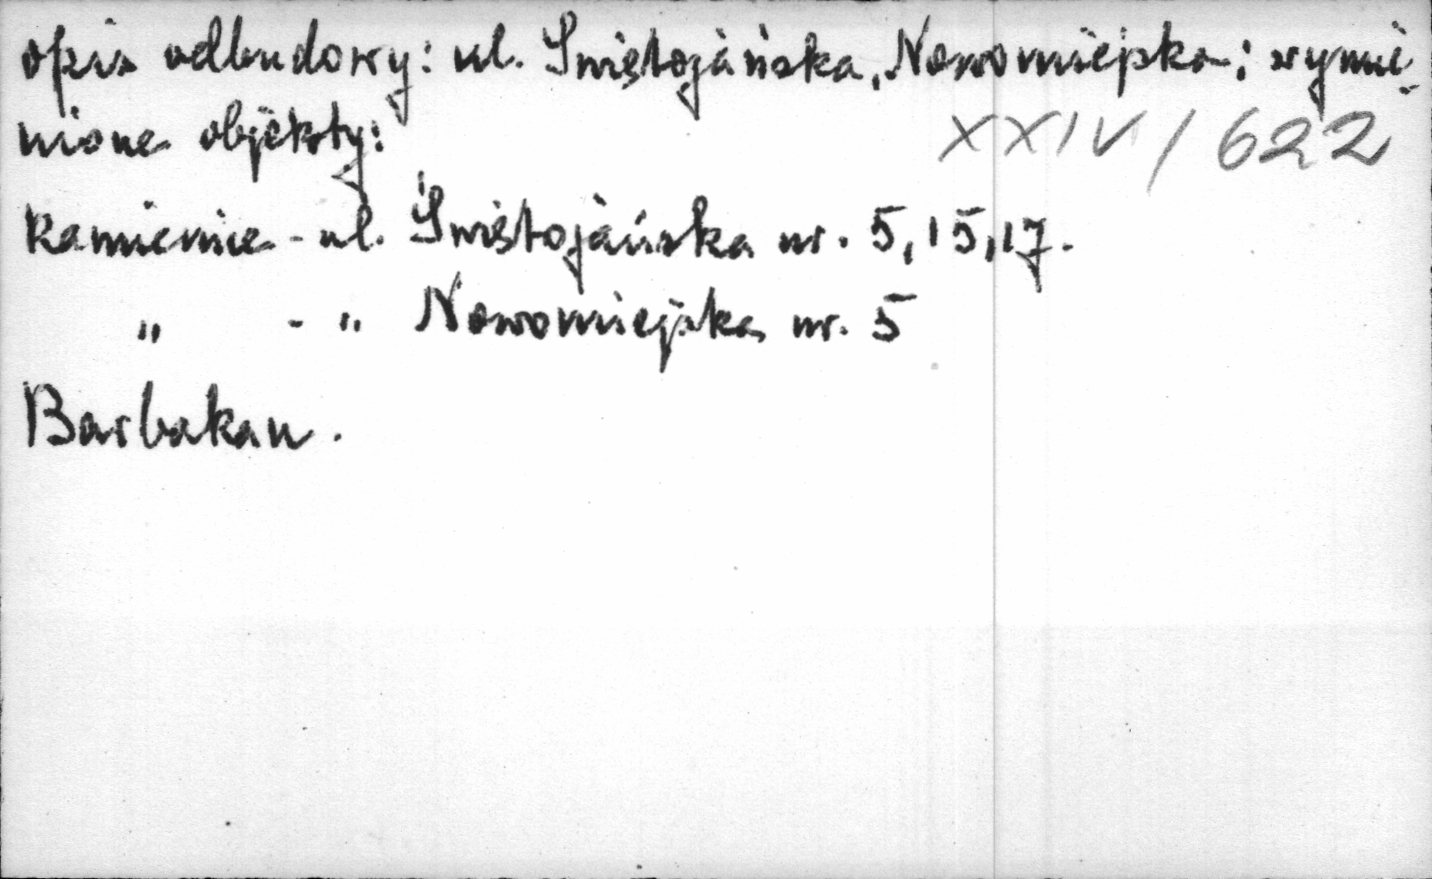 opis odbudowy: ul. Świętojańska, Nowomiejska; wymie-
nione objekty:
XXIV/622
kamienice - ul. Świętojańska nr. 5, 15, 17.
" - " Nowomiejska nr. 5
Barbakan.